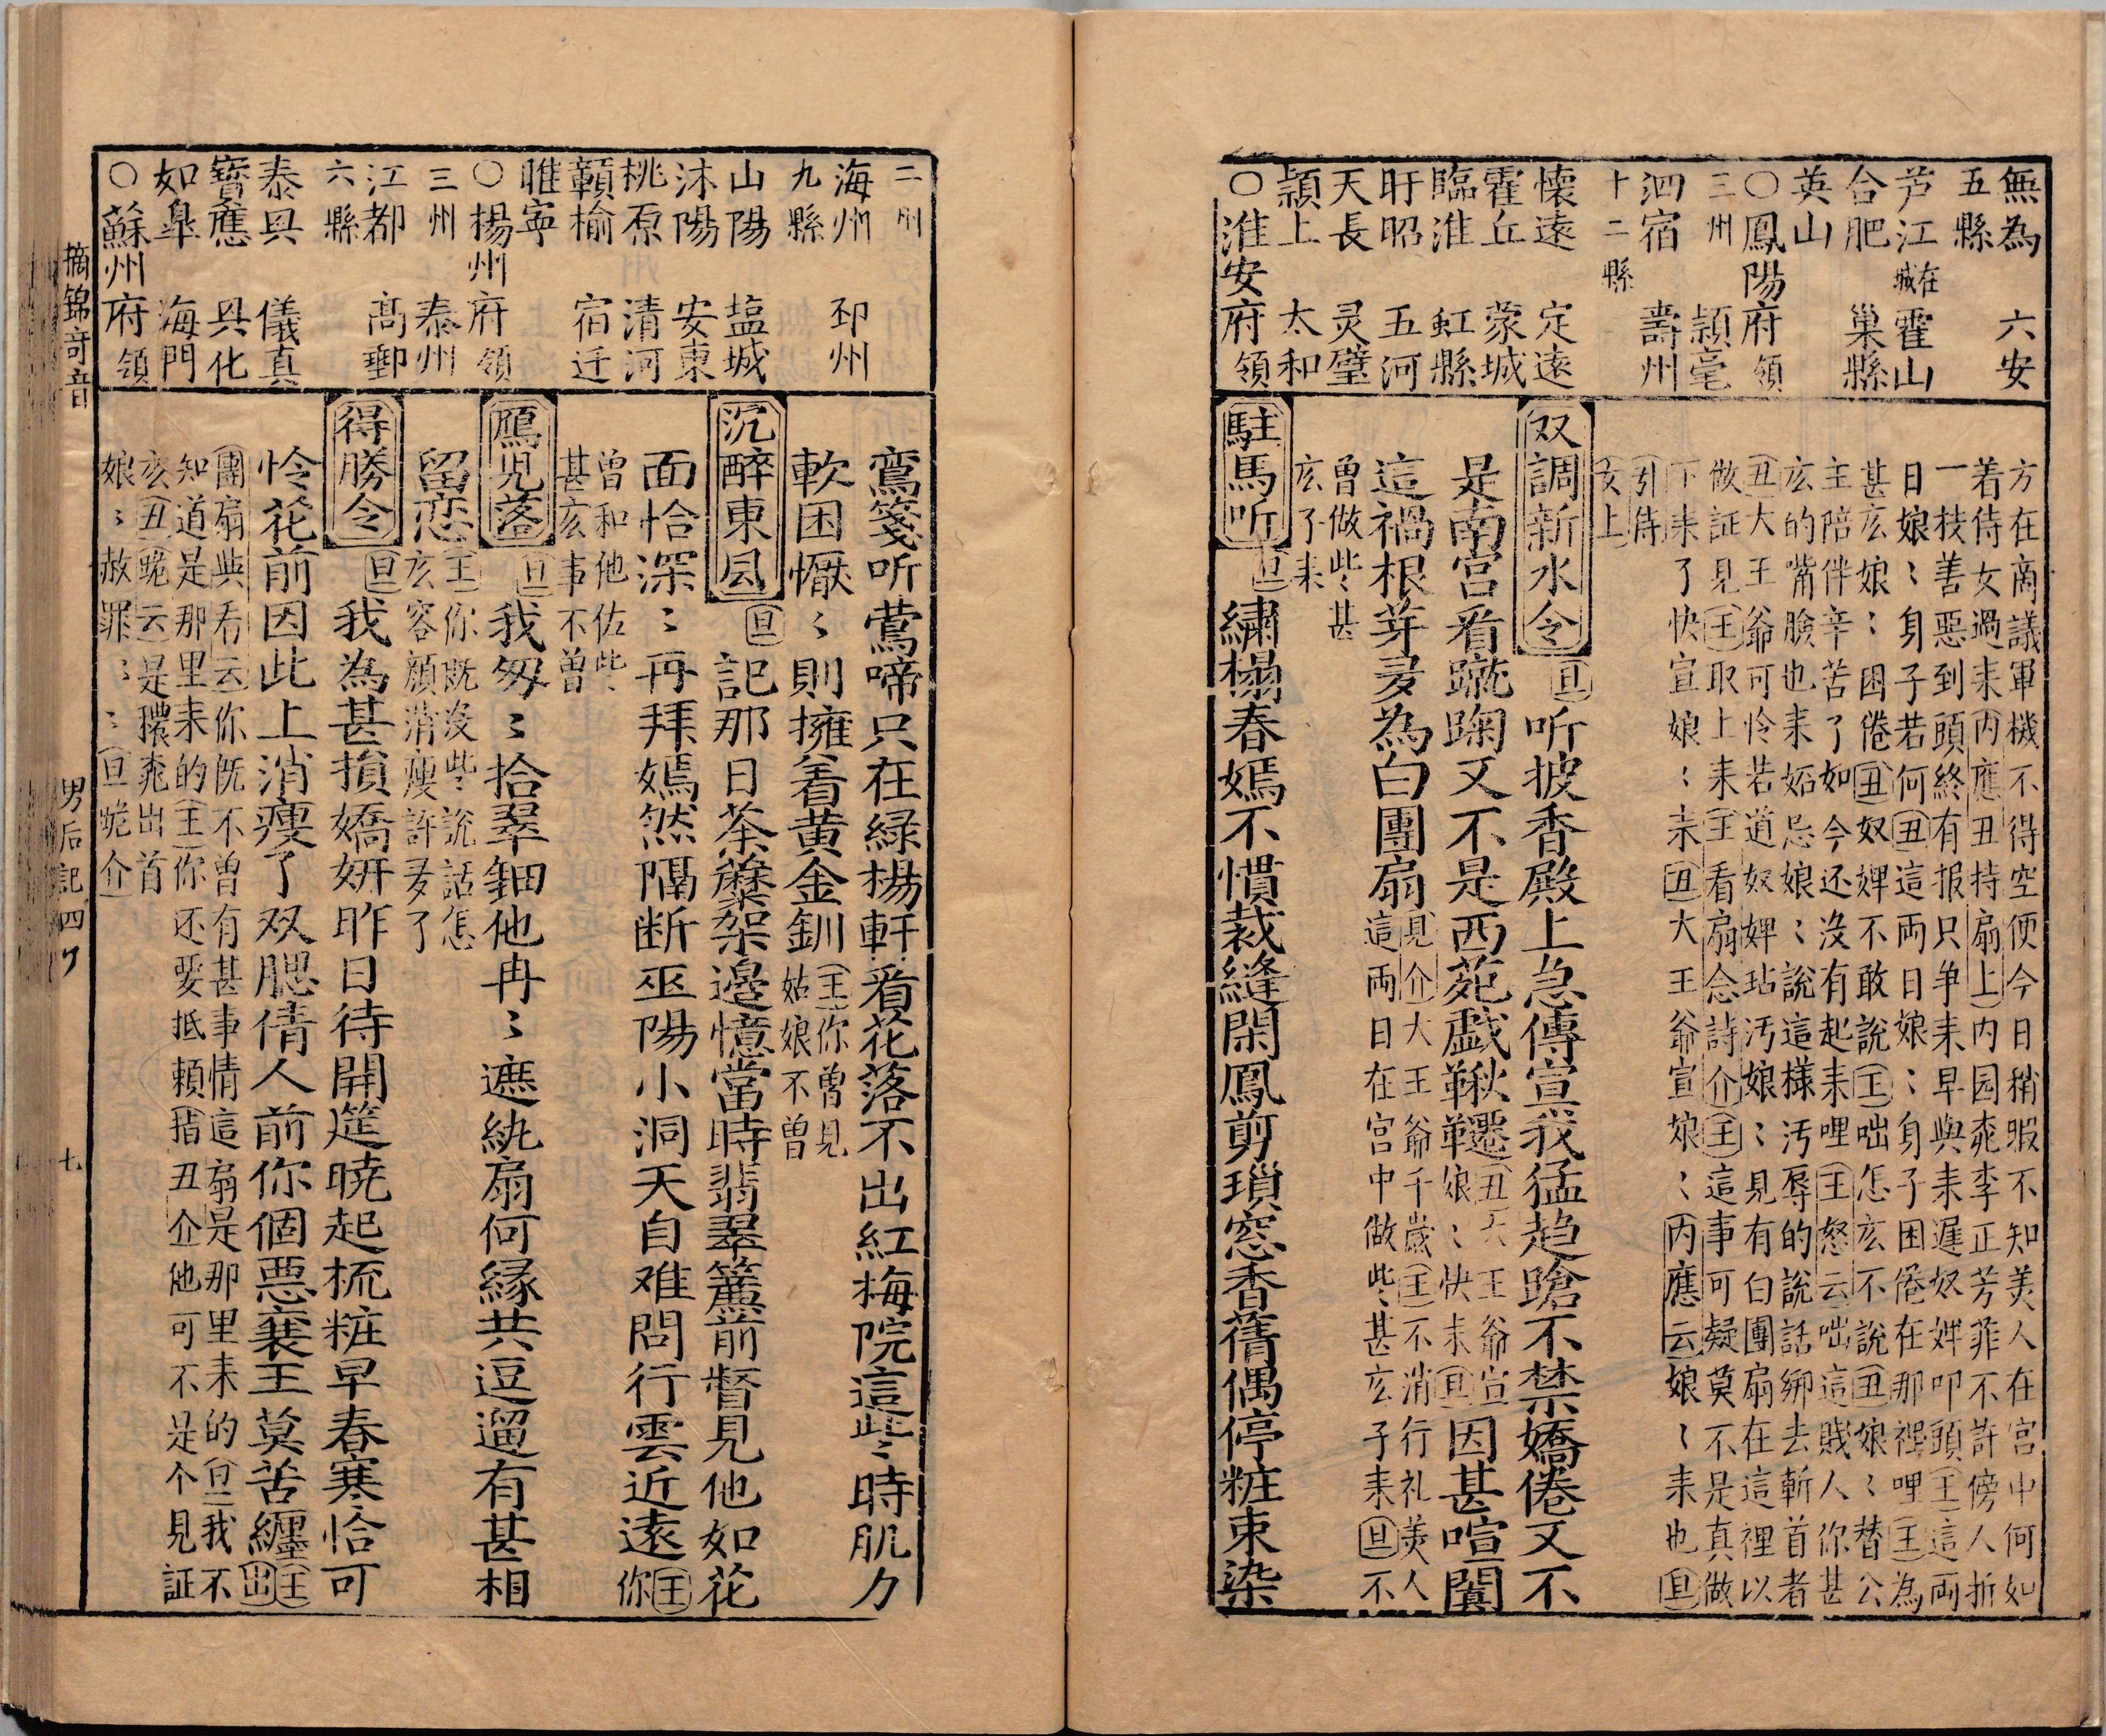 無為　六安
五縣
芦江在城　霍山
合肥　巢縣
英山
○鳳陽府領
三州　潁亳
泗宿　壽州
十二縣
懷遠　定遠
霍丘　蒙城
臨淮　虹縣
盱眙　五河
天長　灵璧
潁上　太和
○淮安府領
方在商議軍機不得空便今日稍暇不知美人在宮中何如
着侍女過来(内應丑持扇上)内园桃李正芳菲不許傍人折
一枝善惡到頭終有报只争来早與来遲奴婢叩頭(王)這両
日娘〻身子若何(丑)這両日娘〻身子困倦在那裡哩(王)為
甚玄娘〻困倦(丑)奴婢不敢說(王)咄怎玄不說(丑)娘〻替公
主陪伴辛苦了如今还没有起来哩(王怒云)咄這賎人你甚
玄的嘴臉也来妬忌娘〻說這樣污辱的說話綁去斬首者
(丑)大王爺可怜若道奴婢玷污娘〻見有白團扇在這裡以
做証見(王)取上来(王看扇念詩介)(王)這事可疑莫不是真做
下来了快宣娘〻来(丑)大王爺宣娘〻(内應云)娘〻来也(旦
引侍
女上)
双調新水令(旦)听披香殿上急傳宣我猛趋蹌不禁嬌倦又不
是南宮看蹴踘又不是西苑戯鞦韆(丑)大王爺宣娘〻快来(旦)因甚喧闐
這禍根芽多為白團扇(見介)大王爺千歲(王)不消行礼美人這両日在宮中做些〻甚玄子来(旦)不
曾做些〻甚玄子来
駐馬听(旦)繡榻春嫣不慣裁縫閑鳳剪瑣窓香蒨偶停粧束染
二州
海州　邳州
九縣
山陽　塩城
沐陽　安東
桃原　清河
贛榆　宿迁
睢寧
○揚州府領
三州　泰州
江都　高郵
六縣
泰具　儀真
寶應　具化
如臯　海門
○蘇州府領
鸞箋听鶯啼只在綠楊軒看花落不出紅梅院這些〻時肌力
軟困懨〻則擁着黄金釧(王)你曾見姑娘不曾
沉醉東風(旦)記那日荼蘼架邊憶當時翡翠簾前瞥見他如花
面恰深〻再拜嫣然隔断巫陽小洞天自难問行雲近遠(王)你
曾和他佐些〻甚玄事不曾
鴈児落(旦)我匆〻拾翠鈿他冉〻遮紈扇何縁共逗遛有甚相
留恋(王)你既没些〻說話怎玄容顔消瘦許多了
得勝令(旦)我為甚損嬌妍昨日待開筵暁起梳粧早春寒恰可
怜花前因此上消瘦了双腮倩人前你個惡襄王莫苦纒(王出
團扇與看云)你既不曾有甚事情這扇是那里来的(旦)我不
知道是那里来的(王)你还要抵頼(指丑介)他可不是个見証
玄(丑跪云)是環桃出首
娘〻赦罪〻〻(旦跪介)
摘錦奇音
男后記四刀
七